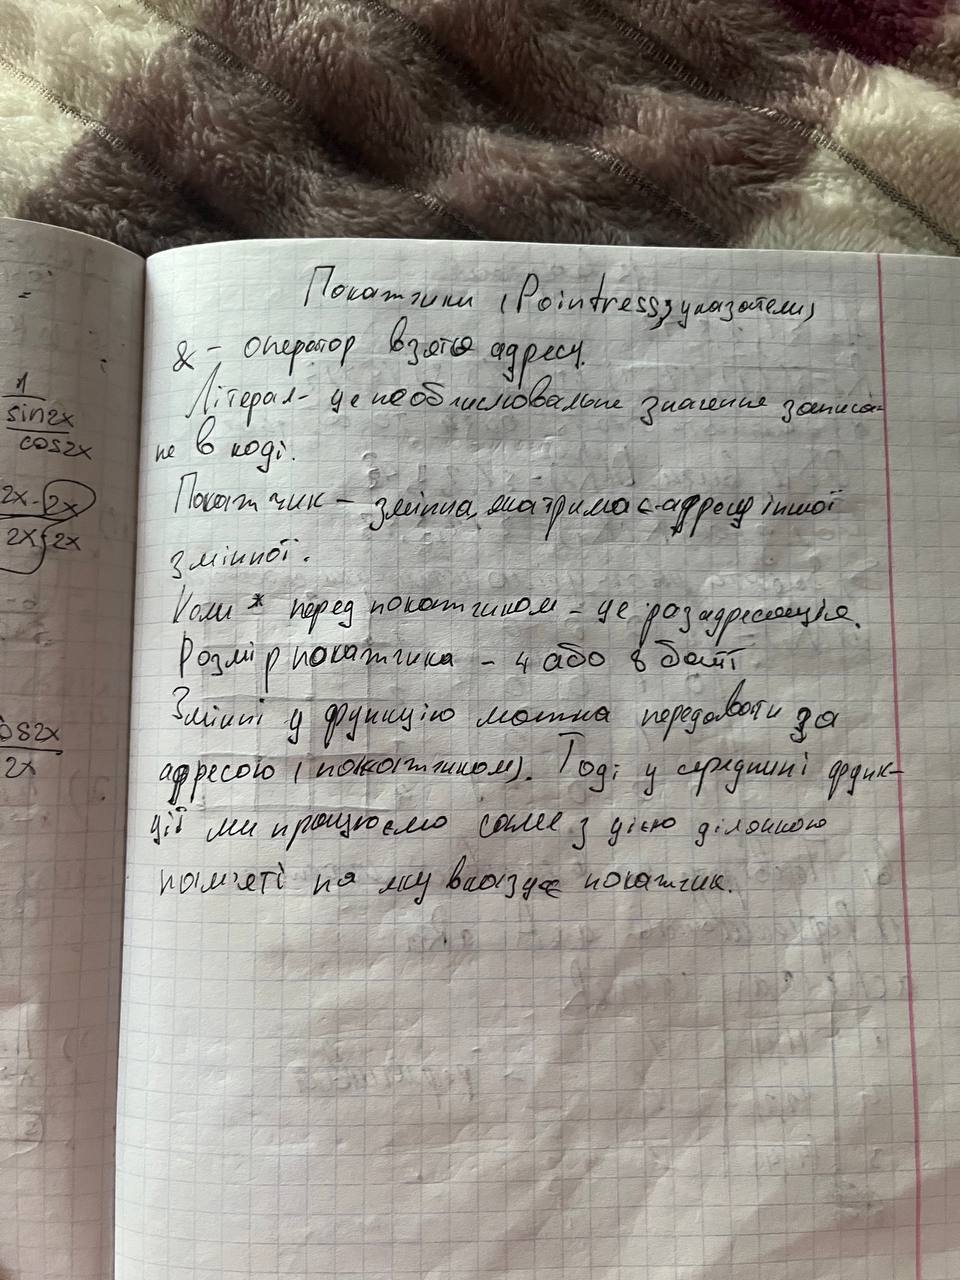 Покатчики (Pointress, указатели)
& - оператор взяття адресу.
Літерал - це необчислювальне значення записа-
не в коді.
Покатчик - змінна, яка тримає адресу іншої
змінної.
Коли * перед покатчиком - це разадресація.
Розмір покатчика - 4 або 8 байт
Змінні у функцію можна передавати за
адресою (покатчиком). Тоді у середині функ-
ції ми працюємо саме з цією ділянкою
пам'яті на яку вказує покатчик.
1
sin2x
cos2x
2x - 2x
2x 2x
os2x
2x